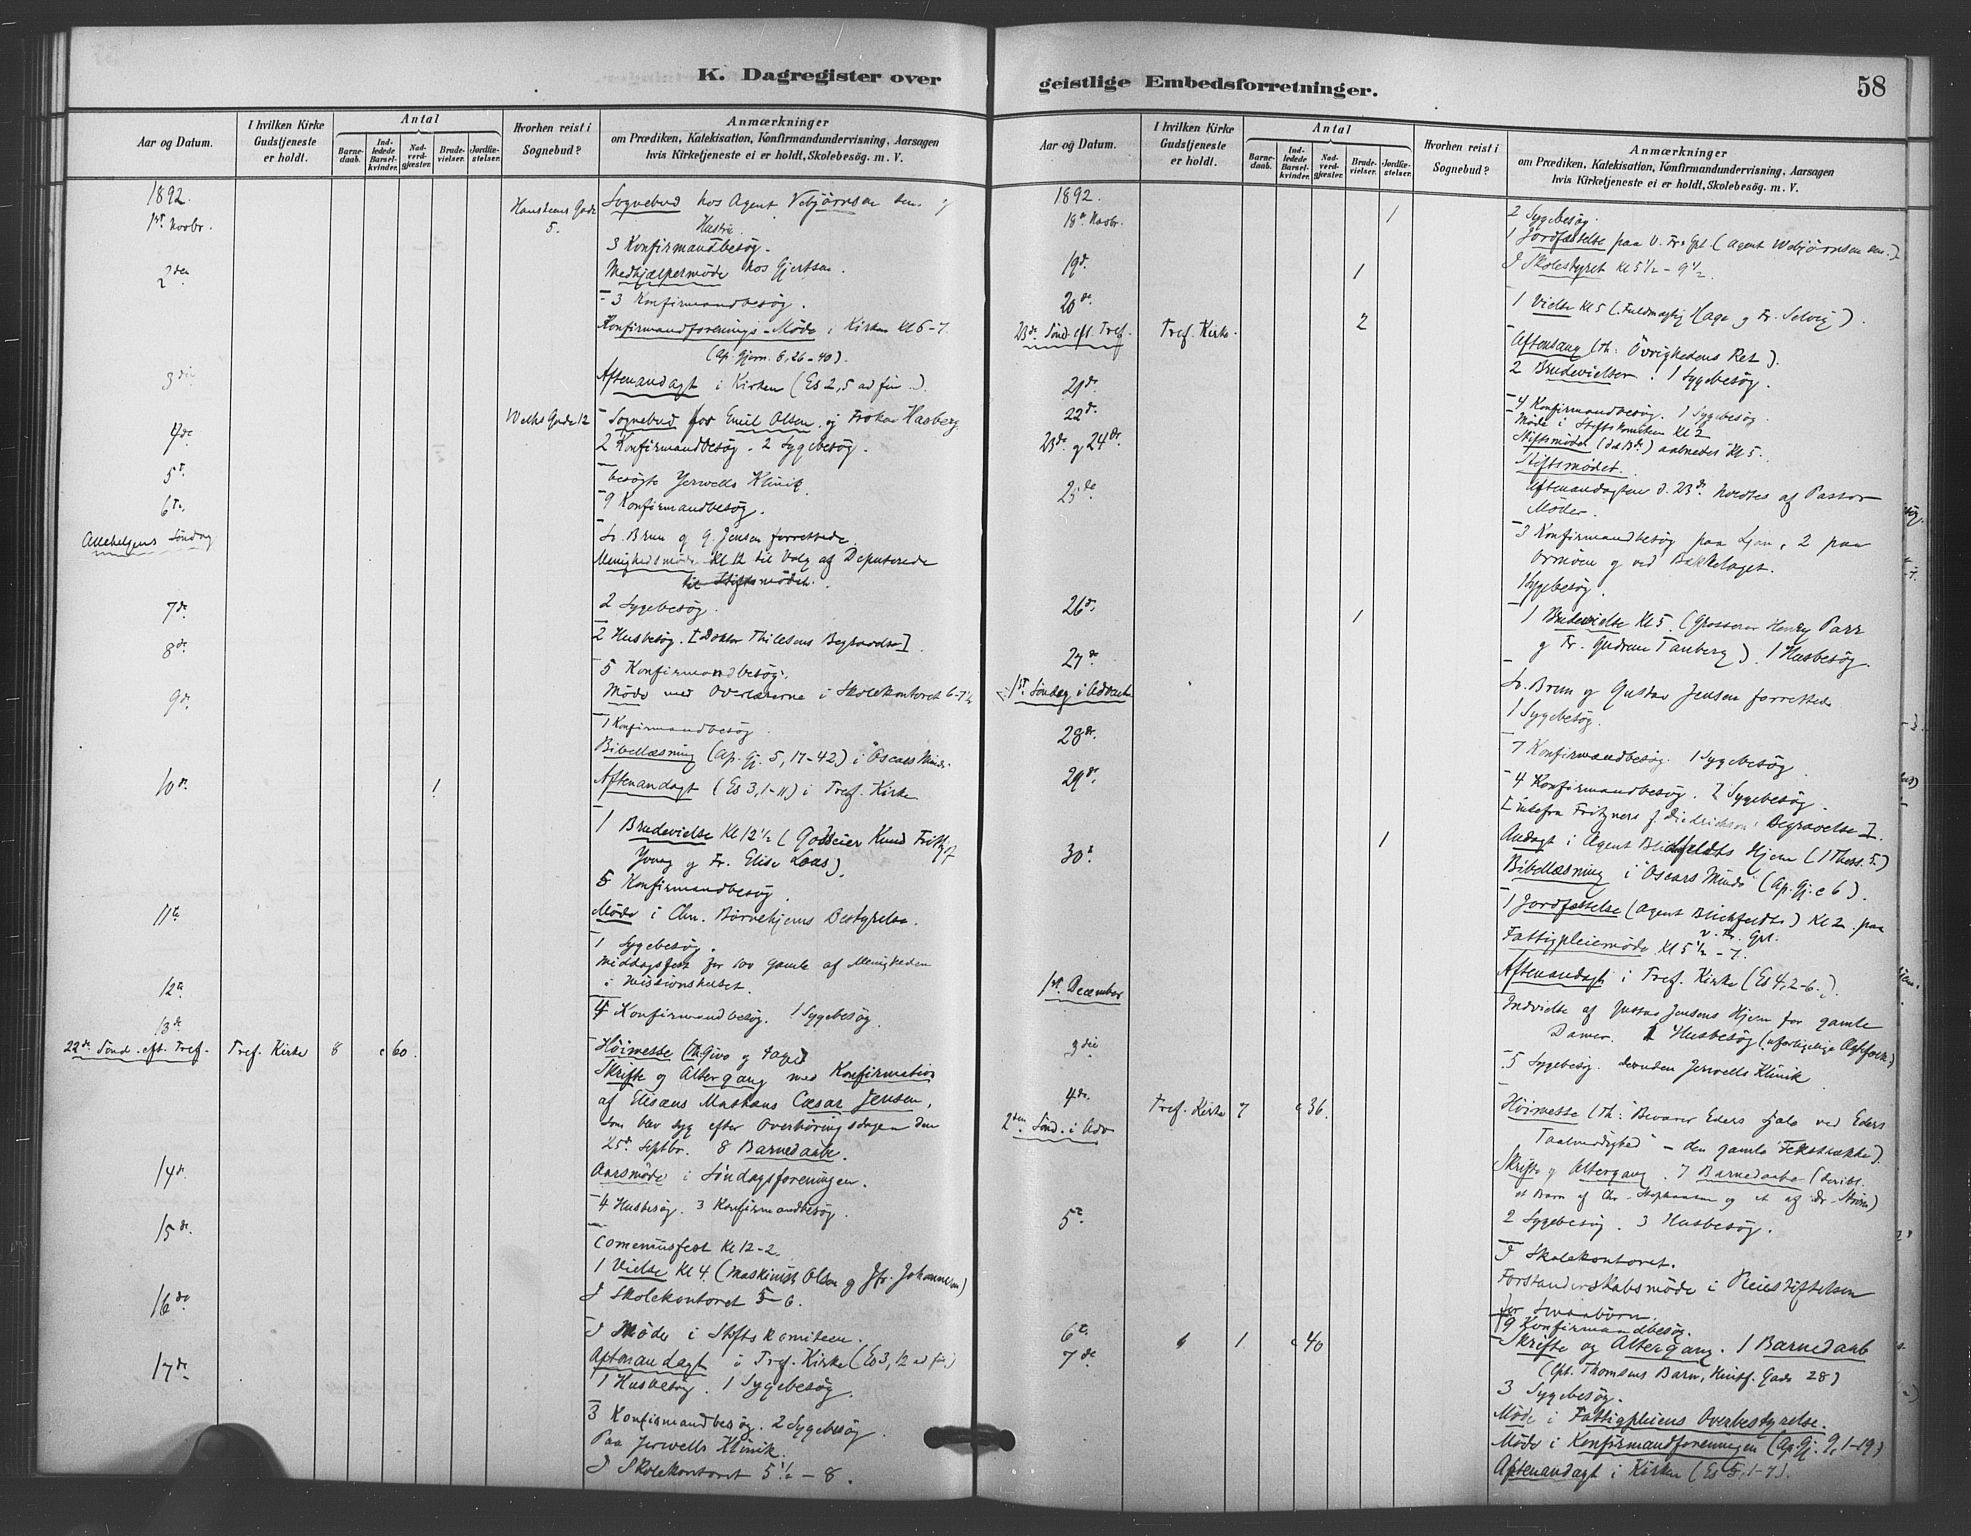 K. Dagregister over
Aar og Datum.
I hvilken Kirke Gudstjeneste er holdt.
Antal
Barnedaab.
Indledede Barselkvinder.
Nadverdgjester.
Brudevielser.
Jordfæstelser.
Hvorhen reist i Sognebud?
Anmærkninger
om Prædiken, Katekisation, Konfirmandundervisning, Aarsagen
hvis Kirketjeneste ei er holdt, Skolebesög. m. V.
1892.
1ste Novbr. Gade 5. Sognebud hos Agent Vebjørnsen sen. og
Hustru.
3 Konfirmandbesøg.
2den Medhjælpermøde hos Gjertsen.
3 Konfirmandbesøg.
Konfirmandforenings-Møde i Kirken Kl 6-7.
(Ap. Gjern. 6, 26-40).
3die Aftenandagt i Kirken (Es 2, 5 ad fin.).
4de Welhs Gade 12 Sognebud for Emil Olsen og Frøken Hasberg
2 Konfirmandbesøg. 2 Sygebesøg.
5t. besøgte Jerwells Klinik.
6te. 9 Konfirmandbesøg.
Allehelgens Søndag Br. Brun og G. Jensen forrettede.
Menighedsmøde Kl 12 til Valg af Deputerede
til Stiftsmødet.
7de 2 Sygebesøg.
2 Husbesøg. [Doktor Thilesens Begravelse]
8de. 5 Konfirmandbesøg.
Møde med Overlærerne i Skolekontoret 6-7½
9de 1 Konfirmandbesøg.
Bibellæsning (Ap. Gj. 5, 17-42) i Oscars Minde.
10de. 1 Aftenandagt (Es 3, 1-11) i Tref. Kirke
1 Brudevielse Kl 12½ (Godseier Knud Fritjof
Young og Fr. Elise Loas).
5 Konfirmandbesøg
11te Møde i Chr. Børnehjems Bestyrelse.
1 Sygebesøg.
Middagsfest for 100 gamle af Menigheden
12te. i Missionshuset.
4 Konfirmandbesøg. 1 Sygebesøg.
13de
22de Sønd. eft. Tref. Tref. Kirke 8 c 60. Høimesse
Skrifte og Altergang med Konfirmation
af Cæsar Jensen,
som blev syg efter Overhøringsdagen den
25de Septbr. 8 Barnedaab.
14de Aarsmøde i Søndagsforeningen.
4 Husbesøg. 3 Konfirmandbesøg.
15de. Comeniusfest Kl 12-2.
1 Vielse Kl 4. (Maskinist Olsen og Jfr. Johannesen)
16de I Skolekontoret 5-6.
I Møde i Stiftskomiteen.
Aftenandagt i Tref. Kirke (Es 3, 12 ad fin.)
17de. 1 Husbesøg. 1 Sygebesøg.
3 Konfirmandbesøg. 2 Sygebesøg.
Paa Jerwells Klinik.
I Skolekontoret 5½-8.
geistlige Embedsforretninger.
58
Aar og Datum.
I hvilken Kirke Gudstjeneste er holdt.
Antal
Barnedaab.
Indledede Barselkvinder.
Nadverdgjester.
Brudevielser.
Jordfæstelser.
Hvorhen reist i Sognebud?
Anmærkninger
om Prædiken, Katekisation, Konfirmandundervisning, Aarsagen
hvis Kirketjeneste ei er holdt, Skolebesög. m. V.
1892.
18de Novbr. 1 2 Sygebesøg.
1 Jordfæstelse paa V. Fr. Grl. (Agent Webjørnsen sen.)
19d. 1 I Skolestyret Kl 5½-9½.
20de. 1 Vielse Kl 5 (Fuldmægtig Hage og Fr. Selvig).
23de Sønd. eft. Tref. Tref. Kirke. 2 Aftensang (Th: Øvrighedens Ret).
2 Brudevielser. 1 Sygebesøg.
21de.
22de. 4 Konfirmandbesøg. 1 Sygebesøg.
Møde i Stiftskomiteen Kl 2
23de og 24de. Stiftsmødet aabnedes Kl 5.
Stiftsmødet.
25de Aftenandagten d. 23de. holdtes af Pastor
Møller.
3 Konfirmandbesøg paa Ljan, 2 paa
Ormøen og ved Bækkelaget.
1 Sygebesøg.
26de. 1 1 Brudevielse Kl 5. (Grosserer Henry Parr
og Fr. Gudrun Tanberg). 1 Husbesøg.
27de.
1ste Søndag i Advent Br. Brun og Gustav Jensen forrettede
1 Sygebesøg.
28de. 7 Konfirmandbesøg. 1 Sygebesøg
29de. 4 Konfirmandbesøg. 2 Sygebesøg.
Fritzners f. Diedrichson Begravelse].
30te 1 Andagt i Agent Blichfeldts Hjem (1 Thess. 5.)
Bibellæsning i Oscars Minde (Ap. Gj. c 6).
1 Jordfæstelse (Agent Blichfeldts) Kl 2. paa
V. Fr. Grl.
Fattigpleiemøde Kl 5½-7.
1ste. December Aftenandagt i Tref. Kirke (Es 4, 2-6.).
Indvielse af Gustav Jensens Hjem for gamle
Damer. Husbesøg
3die 5 Sygebesøg. desuden Jerwells Klinik
4de.
2den Sønd. i Adv. Tref. Kirke 7 c 36. Høimesse (Th: Bevarer Eders Sjæle ved Eders
Taalmodighed - den gamle Textrække).
Skrifte og Altergang. 7 Barnedaab
et Barn af Chr. Stephansen og et af Dr. Strøm)
5te 2 Sygebesøg. 3 Husbesøg.
I Skolekontoret.
Forstanderskabsmøde i Pleiestiftelsen
for Smaabørn.
9 Konfirmandbesøg.
6t. 1 c 40 Skrifte og Altergang. 1 Barnedaab
7de (Cpt. Thomsens Barn, Gade 28)
3 Sygebesøg.
Møde i Fattigpleiens Overbestyrelse.
Møde i Konfirmandforeningen (Ap. Gj. 9, 1-19)
Aftenandagt i Kirken (Es 5, 1-7).